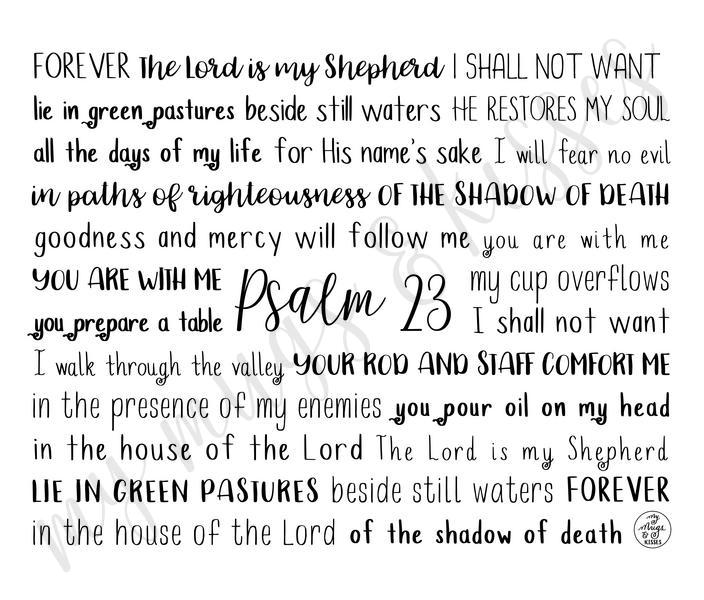 FOREVER The Lord is my Shepherd I SHALL NOT WANT
lie in green pastures beside still waters HE RESTORES MY SOUL
all the days of my life for His name's sake I will fear no evil
in paths of righteousness OF THE SHADOW OF DEATH
goodness and mercy will follow me you are with me
YOU ARE WITH ME Psalm 23 my cup overflows
you prepare a table I shall not want
I walk through the valley YOUR ROD AND STAFF COMFORT ME
in the presence of my enemies you pour oil on my head
in the house of the Lord The Lord is my Shepherd
LIE IN GREEN PASTURES beside still waters FOREVER
in the house of the Lord of the shadow of death
my Mugs & KISSES
my mugs & kisses